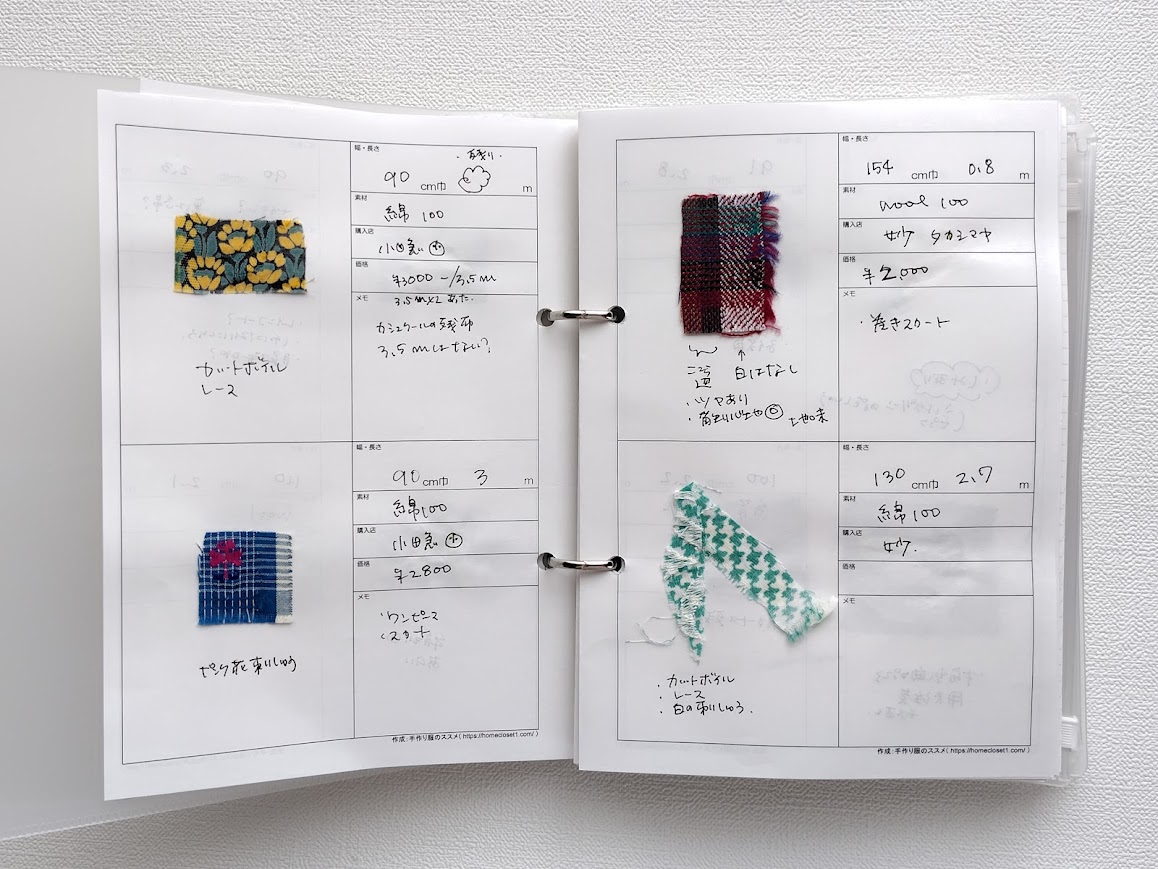 幅・長さ
・残り・
90 cm巾 m
素材
綿 100
購入店
小田急
価格
¥3000-/3.5m
メモ
3.5m×2 あった.
カシュクールの残布
3.5mはない?
カットボイル
レース
幅・長さ
90 cm巾 3 m
素材
綿100
購入店
小田急
価格
¥2800
メモ
・ワンピース
ピンク花 刺しゅう
作成:手作り服のススメ( https://homecloset1.com/ )
幅・長さ
154 cm巾 0.8 m
素材
wool 100
購入店
タカシマヤ
価格
¥2,000
メモ
・巻きスカート
白はなし
・ツヤあり
幅・長さ
130 cm巾 2.7 m
素材
綿100
購入店
価格
メモ
・カットボイル
・レース
・白の刺しゅう.
作成:手作り服のススメ( https://homecloset1.com/ )